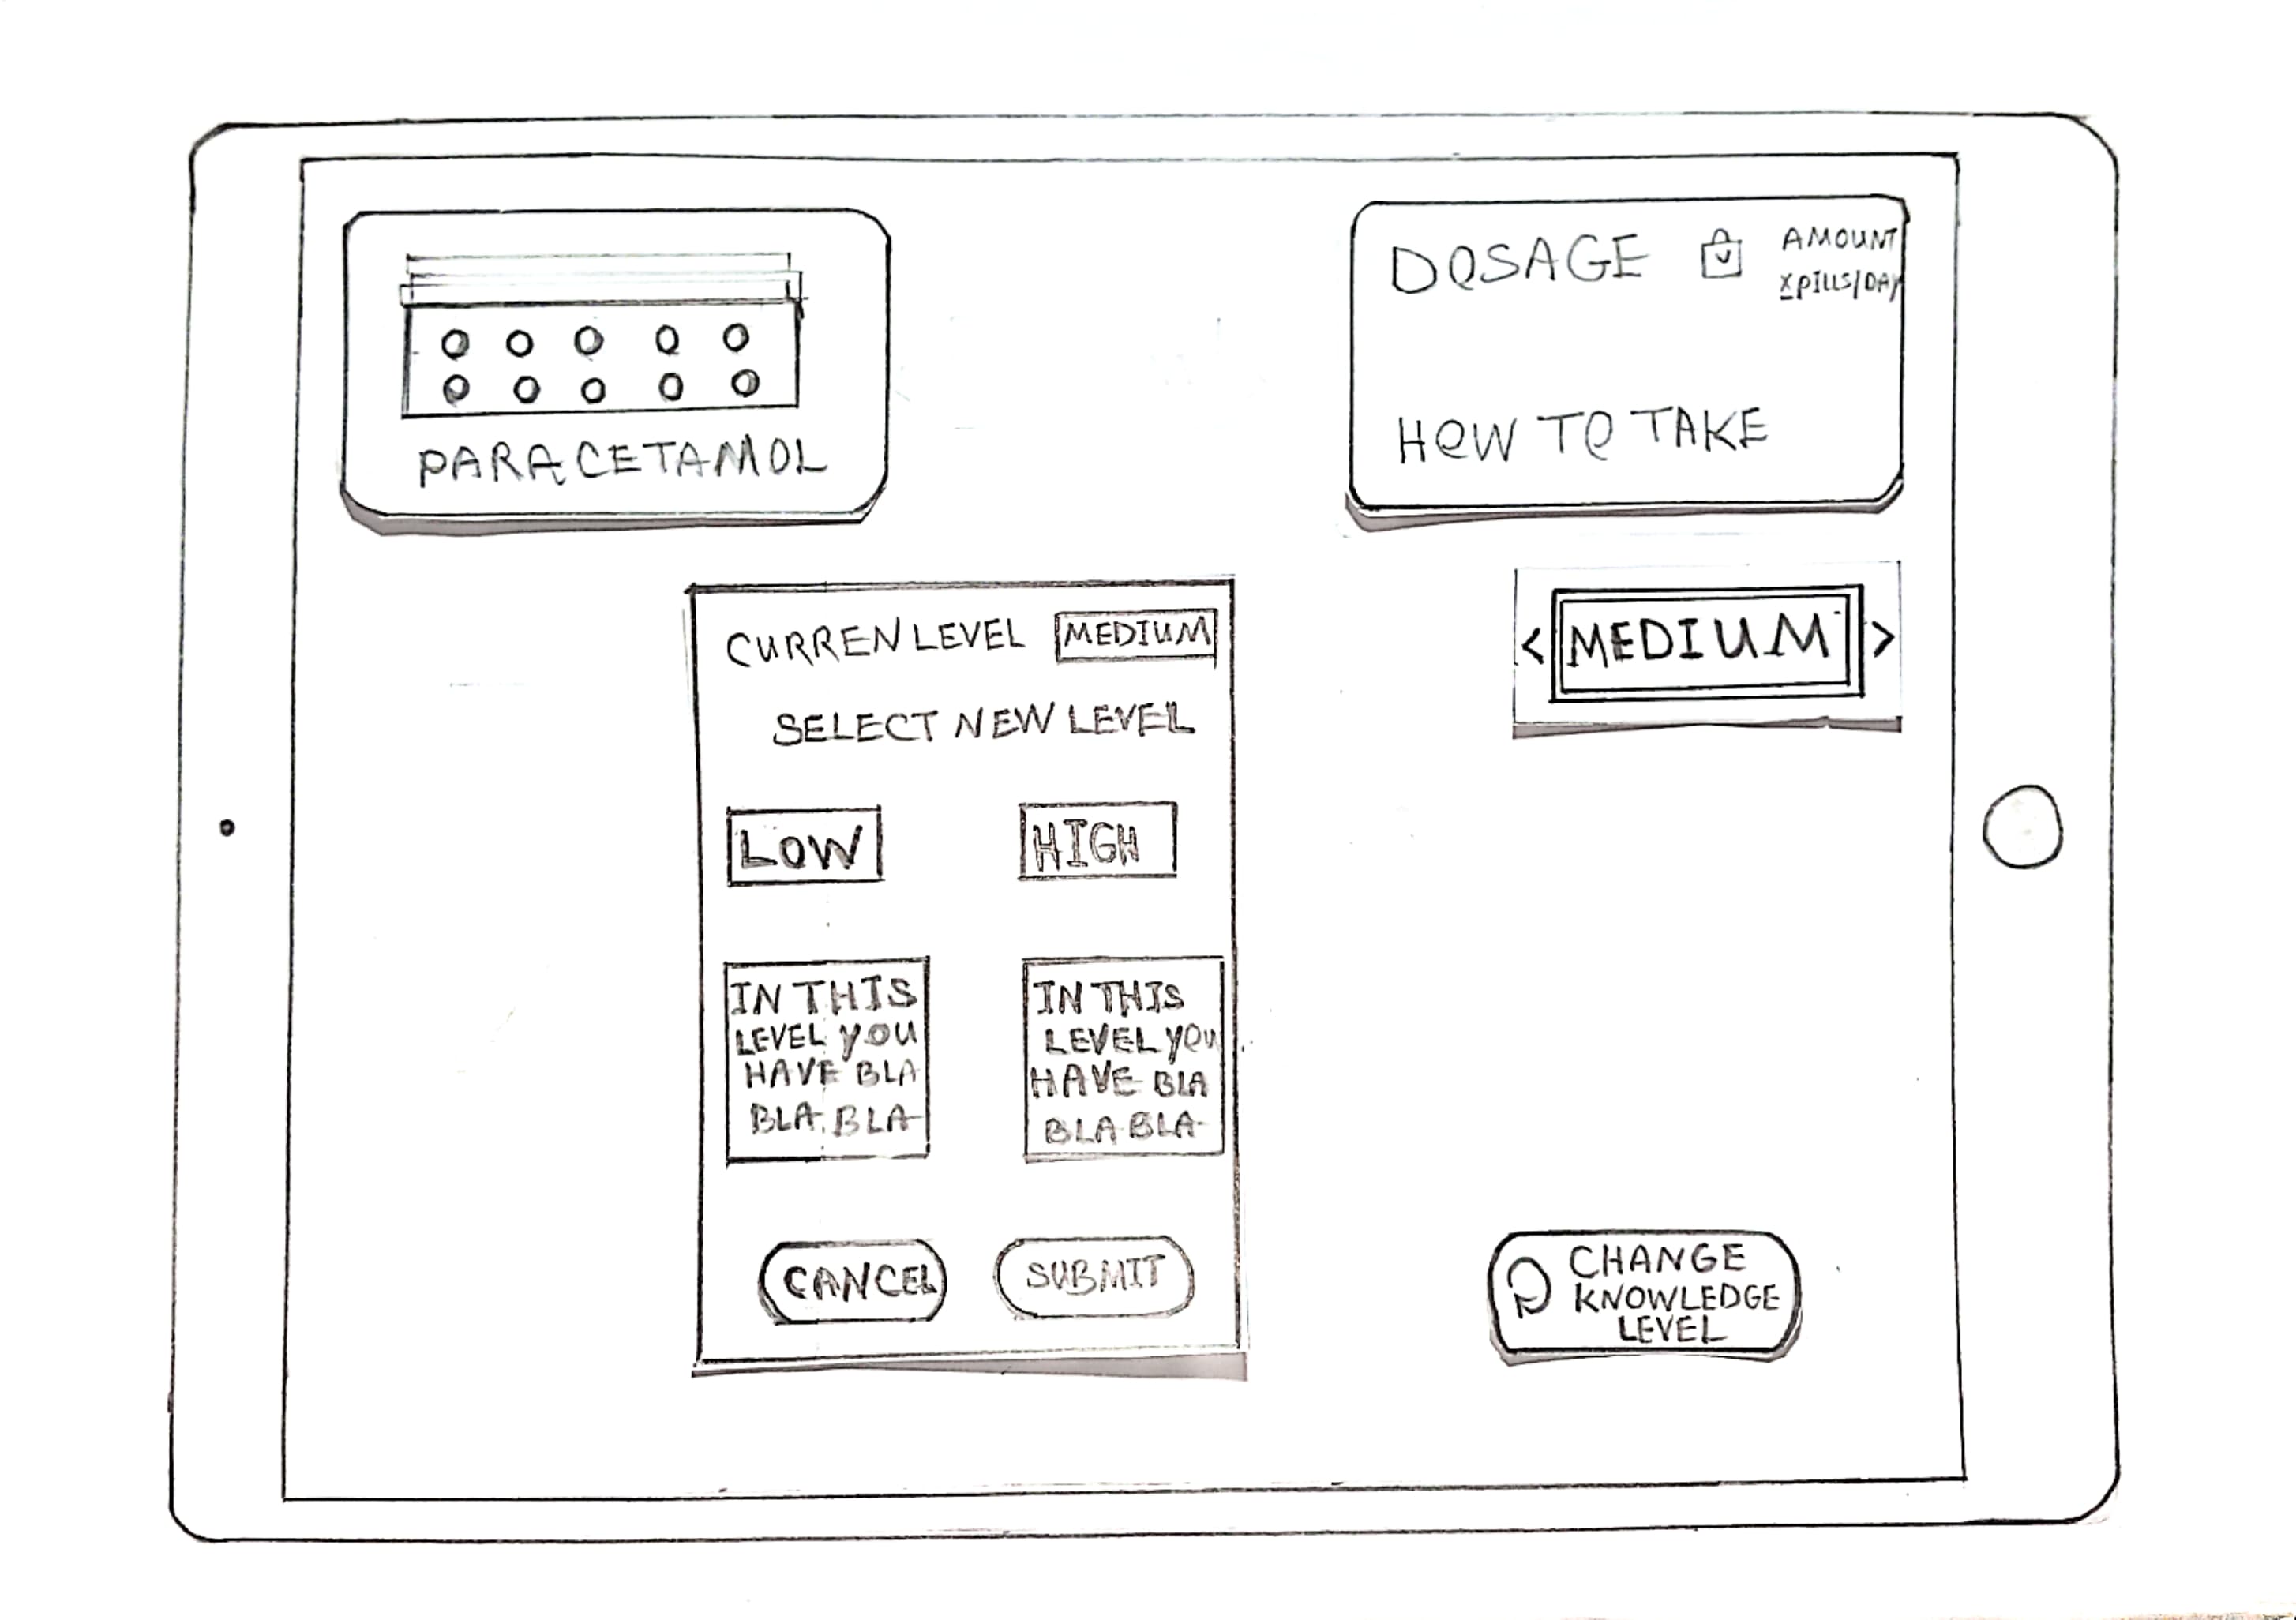 PARACETAMOL
DOSAGE
AMOUNT
XPILLS/DAY
HOW TO TAKE
< MEDIUM >
CURREN LEVEL MEDIUM
SELECT NEW LEVEL
LOW
HIGH
IN THIS
LEVEL YOU
HAVE BLA
BLA BLA
IN THIS
LEVEL YOU
HAVE BLA
BLA BLA
CANCEL
SUBMIT
CHANGE
KNOWLEDGE
LEVEL